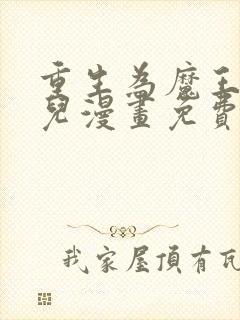 重生為魔王
兒漫畫免費
我家屋頂有瓦